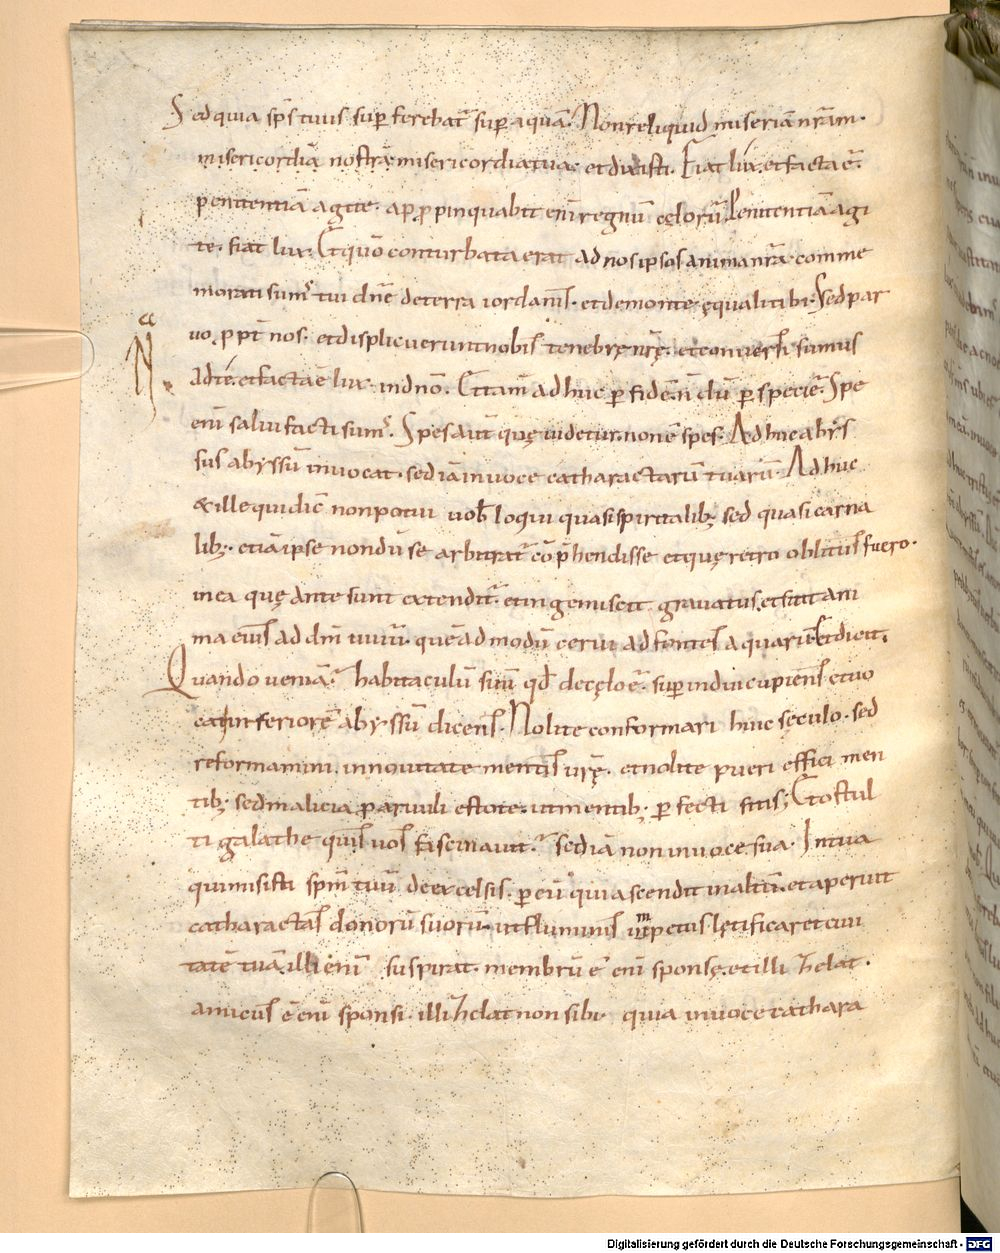 Sed quia sp̄s tuus sup̄ ferebat᷑ sup̄ aquā. Non reliquid miseriā nr̄am.
misericordiā nostrā misericordia tua. et dixisti. Fiat lux. et facta ē.
penitentiā agite. appropinquabit enī regnū cęlorū. Penitentiā agi
te. fiat lux. Et quō conturbata erat ad nos ipsos anima nr̄a. comme
morati sum᷒ tui dn̄e de terra iordanis. et de monte. ęquali tibi. Sed par
uo. ppt̄ nos. et displicuerunt nobis tenebrę nr̄ę. et conuersi sumus
a
N.
ad te. et facta ē lux. in dn̄o. Et tam̄ adhuc p̱ fidē. n̄ dū p̱ speciē. Spe
enī salui facti sum᷒. Spes aut̄ quę uidetur. non ē spes. Adhuc abys
sus abyssū inuocat. sed iā in uoce catharactarū tuarū. Adhuc
& ille qui dic̄ non potui uob̄ loqui quasi spiritalib; sed quasi carna
lib;. etiā ipse nondū se arbitrat᷑ cōp̄hendisse et quę retro oblitus fuero.
in ea quę ante sunt extendit᷑. et ingemiscit. grauatus. et sitit ani
ma eius ad dm̄ uiuū. quēadmodū cerui ad fontes aquarū. et dicit.
Quando ueniā. habitaculū suū qd̄ de cęlo ē. sup̄indui cupiens et uo
cat inferiorē abyssū dicens. Nolite conformari huic sęculo. sed
reformamini. in nouitate mentis ur̄ę. et nolite pueri effici men
tib;. sed malicia paruuli estote. ut mentib; p̱fecti sitis; Et o stul
ti galathe quis uos fascinauit. sed iā non in uoce sua. In tua
qui misisti sp̄m tuū de excelsis. p̱ eū qui ascendit in altū. et aperuit
catharactas donorū suorū. ut fluminis impetus lętificaret ciui
m
tatē tuā. illi enī suspirat. membrū ē enī sponsę. et illi zelat.
amicus ē enī sponsi. illi zelat non sibi. quia in uoce cathara
Digitalisierung gefördert durch die Deutsche Forschungsgemeinschaft - DFG